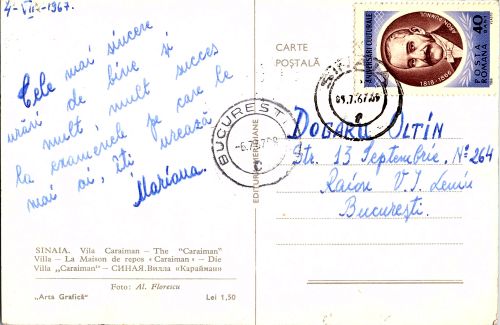 4-VII-1967.
Cele mai sincere
urări de bine și
mult mult succes
la examenele pe care le
mai ai, îți urează
Mariana.
SINAIA. Vila Caraiman — The "Caraiman"
Villa — La Maison de repos « Caraiman » — Die
Villa „Caraiman” — СИНАЯ. Вилла «Карайман»
Foto: Al. Florescu
„Arta Grafică” Lei 1,50
EDITURA MERIDIANE
BUCUREȘTI
CARTE
POȘTALĂ
ANIVERSĂRI CULTURALE
1818-1866
POSTA
ROMANA
40
BANI
DOGARU OLTIN
Str. 13 Septembrie, № 264
Raion V. I. Leniu
București.